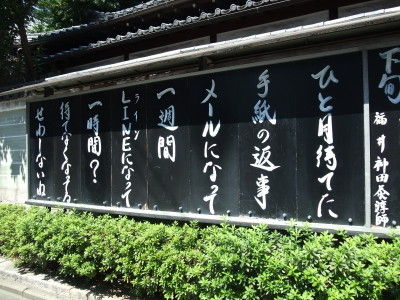 下旬
福井 神田
ひと月待てた
手紙の返事
メールになって
一週間
ライン
LINEになって
一時間？
待てなくなる
せわしないね